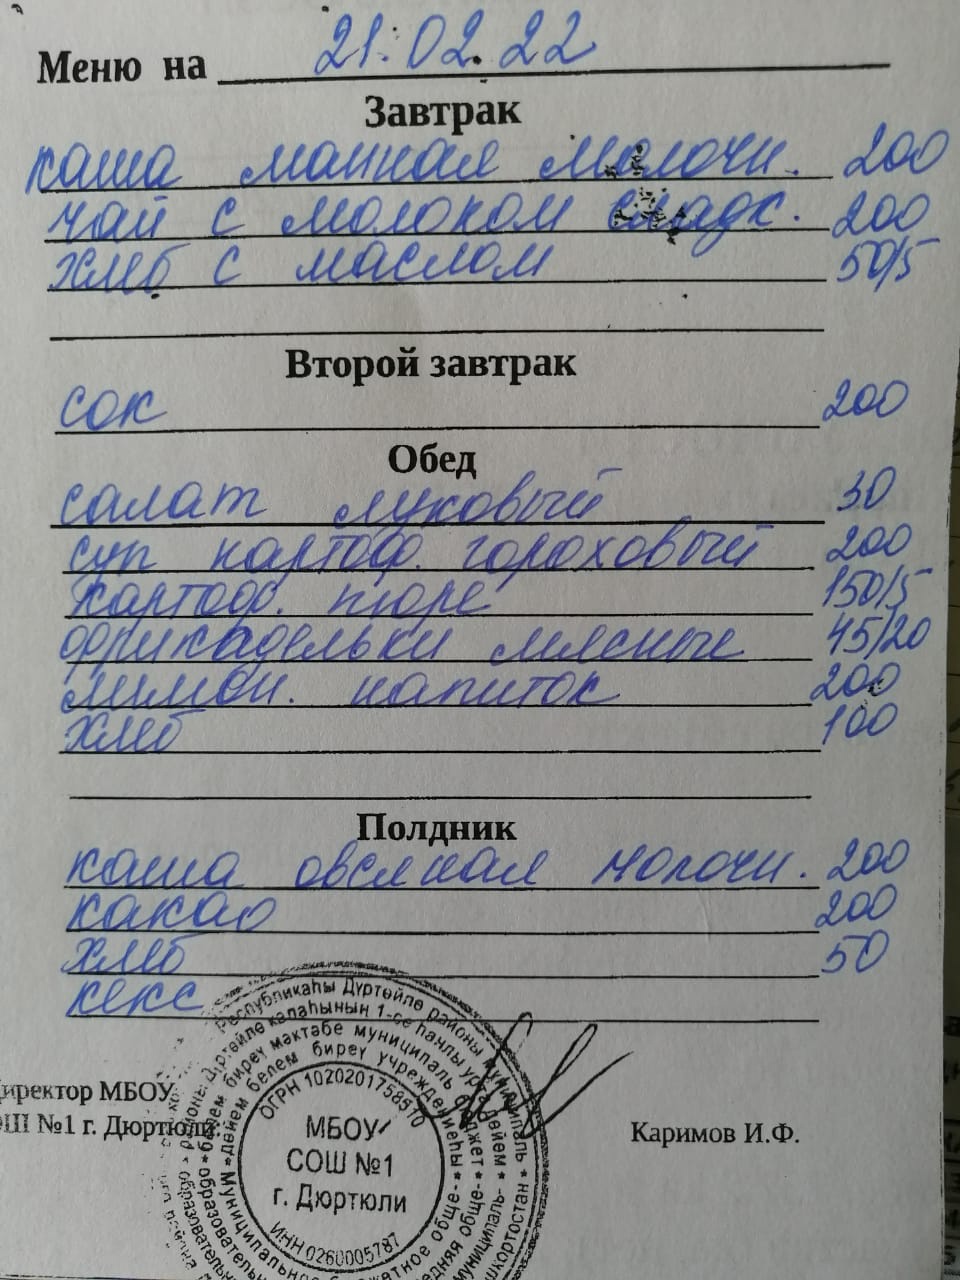 Меню на 21.02.22
Завтрак
каша манная молочн. 200
чай с молоком сладк. 200
хлеб с маслом 50/5
Второй завтрак
сок 200
Обед
салат луковый 30
суп картоф. гороховый 200
картоф. пюре 150/5
фрикадельки мясные 45/20
лимон. напиток 200
хлеб 100
Полдник
каша овсяная молочн. 200
какао 200
хлеб 50
кекс
Республикаһы Дүртөйлө районы муниципаль
Дүртөйлө калаһының 1-се һанлы урта дөйөм
белем биреү мәктәбе муниципаль бюджет
дөйөм белем биреү учреждениеһы
ОГРН 1020201758510
иректор МБОУ
ОШ №1 г. Дюртюли:
МБОУ
СОШ №1
г. Дюртюли
ИНН 0260005787
Каримов И.Ф.